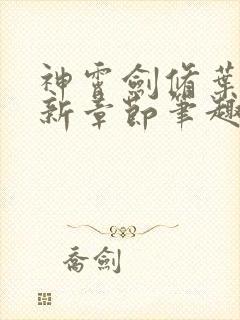 神霄劍脩葉
新章節筆趣
喬劍